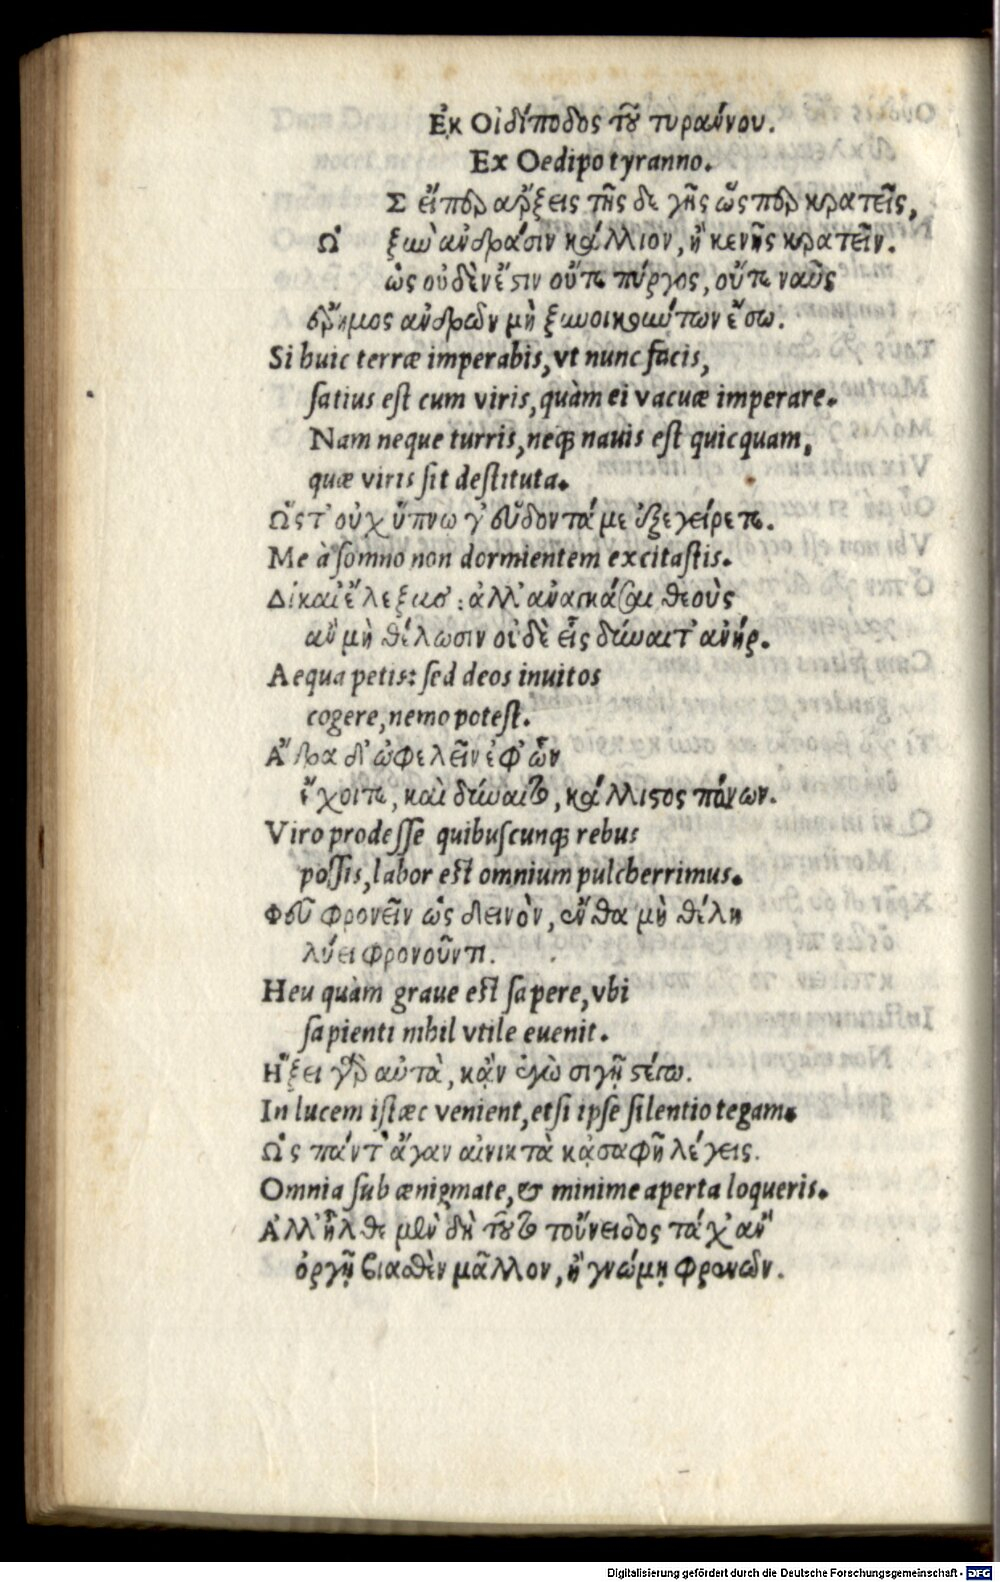 Ἐκ Οἰδίποδος τοῦ τυράννου.
Ex Oedipo tyranno.
Σ εἴπερ ἄρξεις τῆς δε γῆς ὥς περ κρατεῖς,
Ὡ ξὺν ἀνδράσιν κάλλιον, ἢ κενῆς κρατεῖν.
ὡς οὐδὲν ἔστιν οὔτε πύργος, οὔτε ναῦς
ἔρημος ἀνδρῶν μὴ ξυνοικούντων ἔσω.
Si huic terræ imperabis, vt nunc facis,
satius est cum viris, quàm ei vacuæ imperare.
Nam neque turris, neq; nauis est quicquam,
quæ viris sit destituta.
Ὥς τ' οὐχ ὕπνω γ' εὕδοντά με ἐξεγείρετε.
Me à somno non dormientem excitastis.
Δίκαι' ἔλεξας: ἀλλ' ἀναγκάσαι θεοὺς
ἂν μὴ θέλωσιν οὐδὲ εἷς δύναιτ' ἀνήρ.
Aequa petis: sed deos inuitos
cogere, nemo potest.
Ἄνδρα δ' ὠφελεῖν ἐφ' ὧν
ἔχοιτε, καὶ δύναιτο, κάλλιστος πόνων.
Viro prodesse quibuscunq; rebus
possis, labor est omnium pulcherrimus.
Φεῦ φρονεῖν ὡς δεινὸν, ἔνθα μὴ θέλη
λύει φρονοῦντι.
Heu quàm graue est sapere, vbi
sapienti nihil vtile euenit.
Ἥξει γὰρ αὐτὰ, κἂν ἐγὼ σιγῇ στέγω.
In lucem istæc venient, etsi ipse silentio tegam.
Ὡς πάντ' ἄγαν αἰνικτὰ κἀσαφῆ λέγεις.
Omnia sub ænigmate, & minime aperta loqueris.
Ἀλλ' ἦλθε μὲν δὴ τοῦτο τοὔνειδος τάχ' ἂν
ὀργῇ βιασθὲν μᾶλλον, ἢ γνώμῃ φρενῶν.
Digitalisierung gefördert durch die Deutsche Forschungsgemeinschaft - DFG